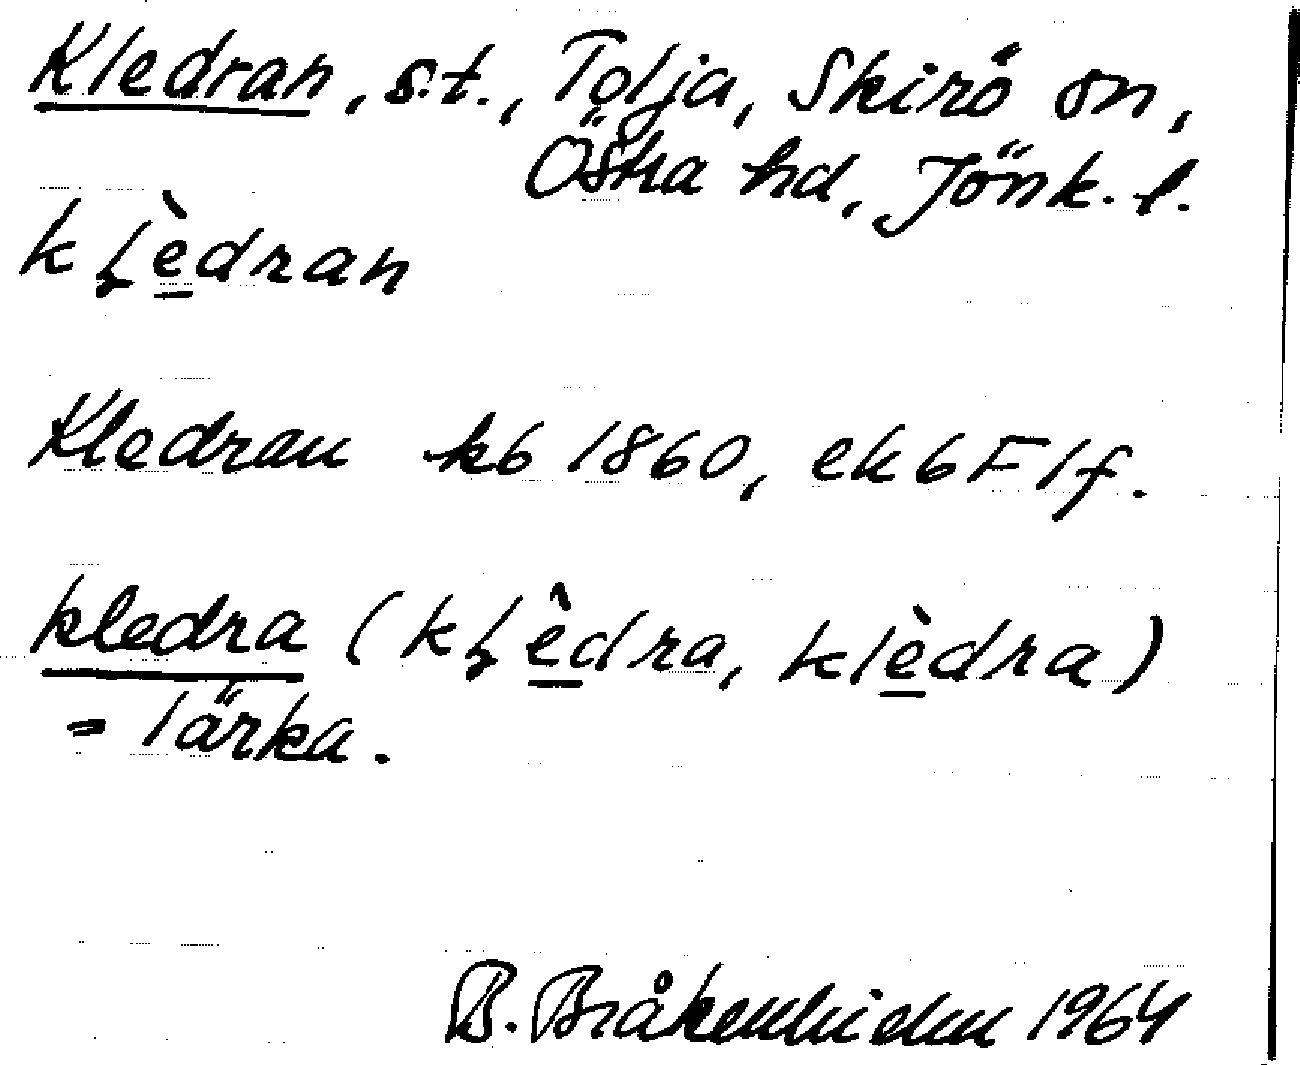 Kledran, s.t., Tölja, Skirö sn,
Östra hd, Jönk. l.
kɭèdran
Kledran kb 1860, ekb Flf.
kledra (kɭèdra, klèdra)
= lärka.
B. Bråkenhielm 1964